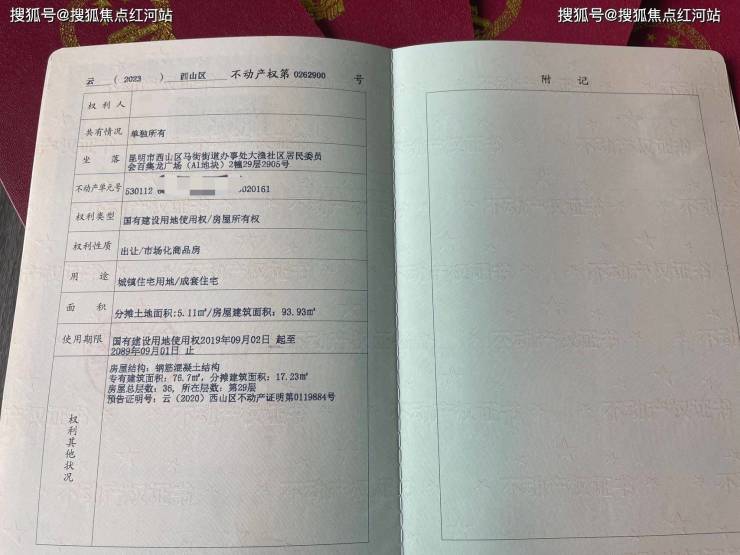 搜狐号@搜狐焦点红河站
搜狐号@搜狐焦点红河站
云 ( 2023 ) 西山区 不动产权第 0262900 号
权利人
共有情况 单独所有
坐落 昆明市西山区马街街道办事处大渔社区居民委员
会百集龙广场（A1地块）2幢29层2905号
不动产单元号 530112 020161
权利类型 国有建设用地使用权/房屋所有权
权利性质 出让/市场化商品房
用途 城镇住宅用地/成套住宅
面积 分摊土地面积:5.11㎡/房屋建筑面积: 93.93㎡
使用期限 国有建设用地使用权2019年09月02日 起至
2089年09月01日 止
权利其他状况
房屋结构: 钢筋混凝土结构
专有建筑面积: 76.7㎡, 分摊建筑面积: 17.23㎡
房屋总层数: 36, 所在层数: 第29层
预告证明号: 云（2020）西山区不动产证明第0119884号
附记